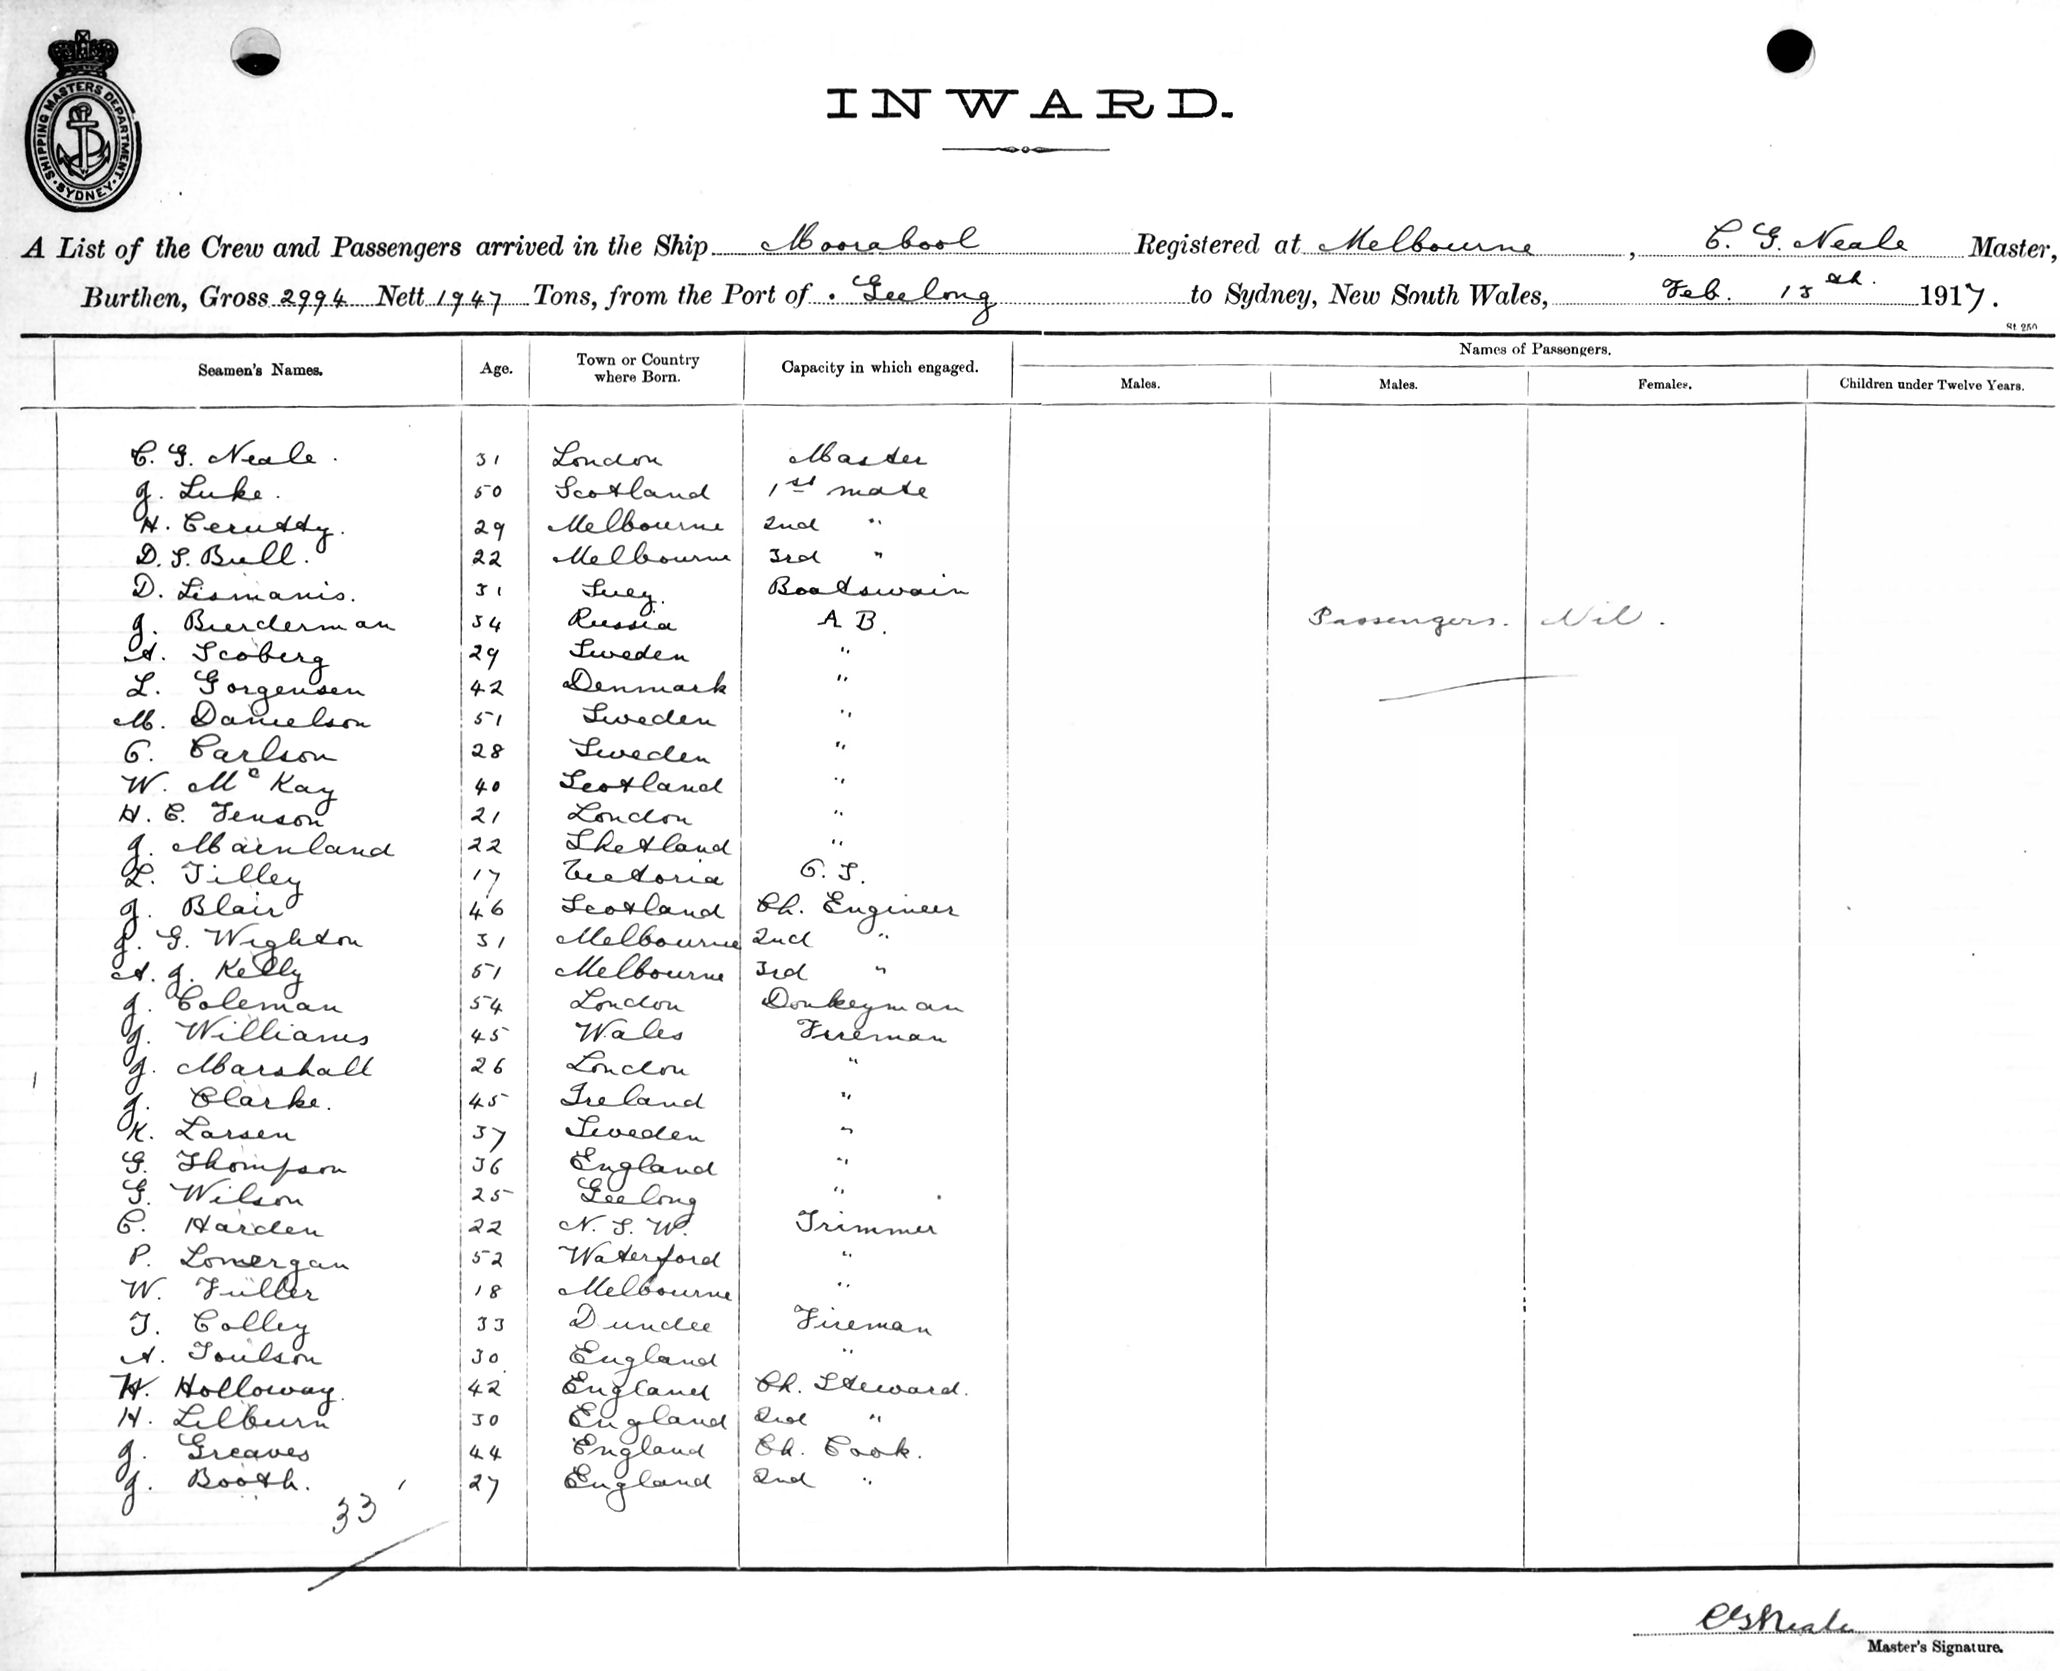 SHIPPING MASTERS DEPARTMENT
SYDNEY
INWARD.
A List of the Crew and Passengers arrived in the Ship Moorabool Registered at Melbourne, C. G. Neale Master,
Burthen, Gross 2994 Nett 1947 Tons, from the Port of Geelong to Sydney, New South Wales, Feb. 15th. 1917.
St. 250
Seamen's Names. Age. Town or Country where Born. Capacity in which engaged. Names of Passengers.
Males. Males. Females. Children under Twelve Years.
C. G. Neale. 31 London Master
J. Luke. 50 Scotland 1st mate
H. Cerutty. 29 Melbourne 2nd "
D. S. Bull. 22 Melbourne 3rd "
D. Lismanis. 31 Boatswain
J. Burderman 34 Russia A B.
A. Scoberg 29 Sweden "
L. Gorgensen 42 Denmark "
M. Danielson 51 Sweden "
C. Carlson 28 Sweden "
W. Mc Kay 40 Scotland "
H. C. Jenson 21 London "
J. Mainland 22 Shetland "
L. Tilley 17 Victoria O. S.
J. Blair 46 Scotland Ch. Engineer
J. G. Wighton 31 Melbourne 2nd "
A. J. Kelly 51 Melbourne 3rd "
J. Coleman 54 London Donkeyman
J. Williams 45 Wales Fireman
J. Marshall 26 London "
J. Clarke. 45 Ireland "
K. Larsen 37 Sweden "
G. Thompson 36 England "
G. Wilson 25 Geelong "
C. Harden 22 N. S. W. Trimmer
P. Lonergan 52 Waterford "
W. Fuller 18 Melbourne "
T. Colley 33 Dundee Fireman
A. Toulson 30 England "
W. Holloway. 42 England Ch. Steward.
H. Lilburn 30 England 2nd "
J. Greaves 44 England Ch. Cook.
J. Booth. 27 England 2nd "
33
Passengers. Nil.
CGNeale
Master's Signature.